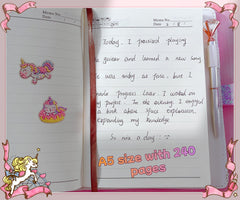 Memo No.
Memo No.
Today, I practiced playing
the guitar and learned a new song
was today as face, but I
made progress later. I worked on
my project. In the evening, I enjoyed
a book about space exploration,
expanding my knowledge.
So nice a day!
A5 size with 240
pages